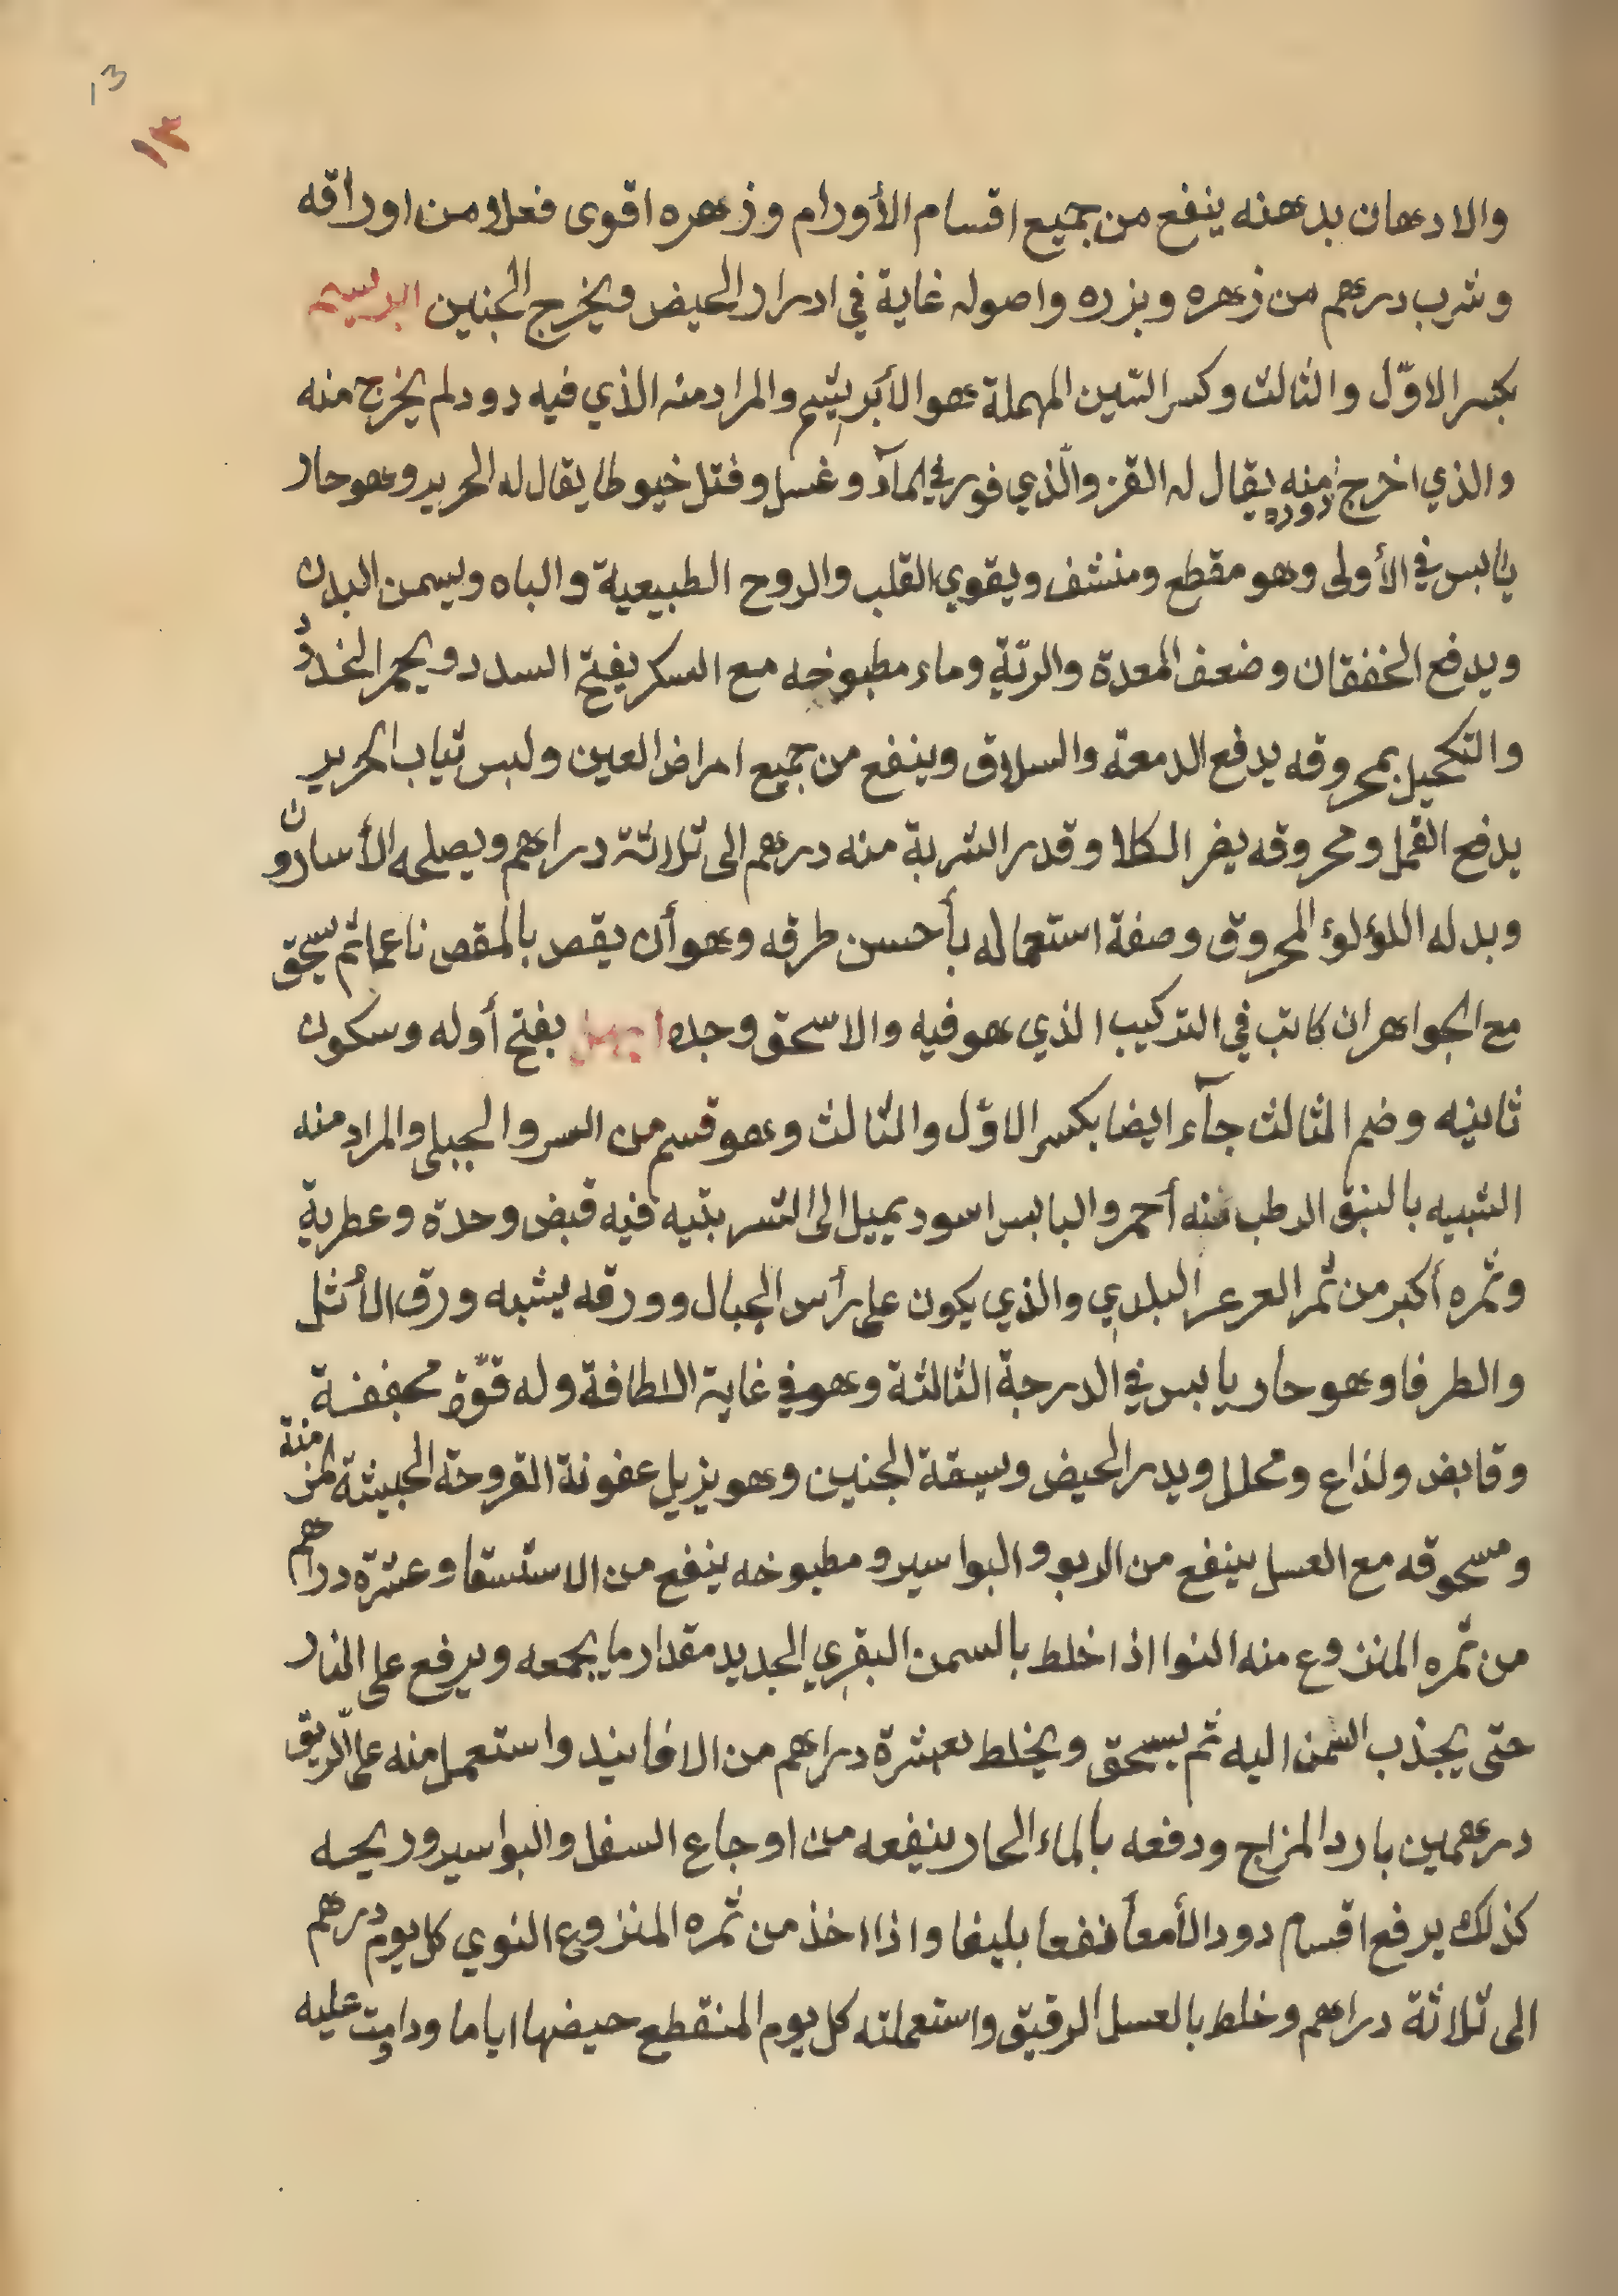 13
١٣
والادهان بدهنه ينفع من جميع اقسام الأورام وزهره اقوى فعلا من اوراقه
وشرب درهم من زهره وبزره واصوله غاية في ادرار الحيض ويخرج الجنين ابريسم
بكسر الاوّل والثالث وكسر السين المهملة هو الأبريشم والمراد منه الذي فيه دود لم يخرج منه
والذي اخرج منه دوده يقال له القز والّذي فور في المآء وغسل وفتل خيوطا يقال له الحرير وهو حار
يابس في الأولى وهو مقطع ومنشف ويقوي القلب والروح الطبيعية والباه ويسمن البدن
ويدفع الخفقان وضعف المعدة والريّة وماء مطبوخه مع السكر يفتح السدد ويحمر الخدود
والتكحيل بمحروقه يدفع الدمعة والسلاق وينفع من جميع امراض العين ولبس ثياب الحرير
يدفع القمل ومحروقه يضر الكلا وقدر الشربة منه درهم الى ثلاثة دراهم ويصلحه الأسارون
وبدله اللؤلؤ المحروق وصفة استعماله بأحسن طرقه وهو أن يقص بالمقص ناعما ثم يسحق
مع الجواهر ان كانت في التركيب الذي هو فيه والا سحق وحده ابهل بفتح أوله وسكون
ثانيه وضم الثالث جآء ايضا بكسر الاوّل والثالث وهو قسم من السرو الجبلي والمراد منه
الشبيه بالنبق الرطب منه أحمر واليابس اسود يميل الى التسربتيه فيه قبض وحدة وعطرية
وثمره أكبر من ثمر العرعر البلدي والذي يكون على رأس الجبال وورقه يشبه ورق الأثل
والطرفا وهو حار يابس في الدرجة الثالثة وهو في غاية اللطافة وله قوّة مجففة
وقابض ولذاع ومحلل ويدر الحيض ويسقة الجنين وهو يزيل عفونة القروحة الخبيثة المزمنة
ومسحوقه مع العسل ينفع من الربو والبواسير ومطبوخه ينفع من الاستسقا وعشرة دراهم
من ثمره المنزوع منه النوا اذا خلط بالسمن البقري الجديد مقدار ما يجمعه ويرفع على النار
حتى يجذب السمن اليه ثم يسحق ويخلط بعشرة دراهم من الافانيد واستعمل منه على الريق
درهمين بارد المزاج ودفعه بالماء الحار ينفعه من اوجاع السفل والبواسير وريحه
كذلك يرفع اقسام دود الأمعآ نفعا بليغا واذا اخذ من ثمره المنزوع النوي كل يوم درهم
الى ثلاثة دراهم وخلط بالعسل الرقيق واستعملته كل يوم المنقطع حيضها اياما وداومت عليه